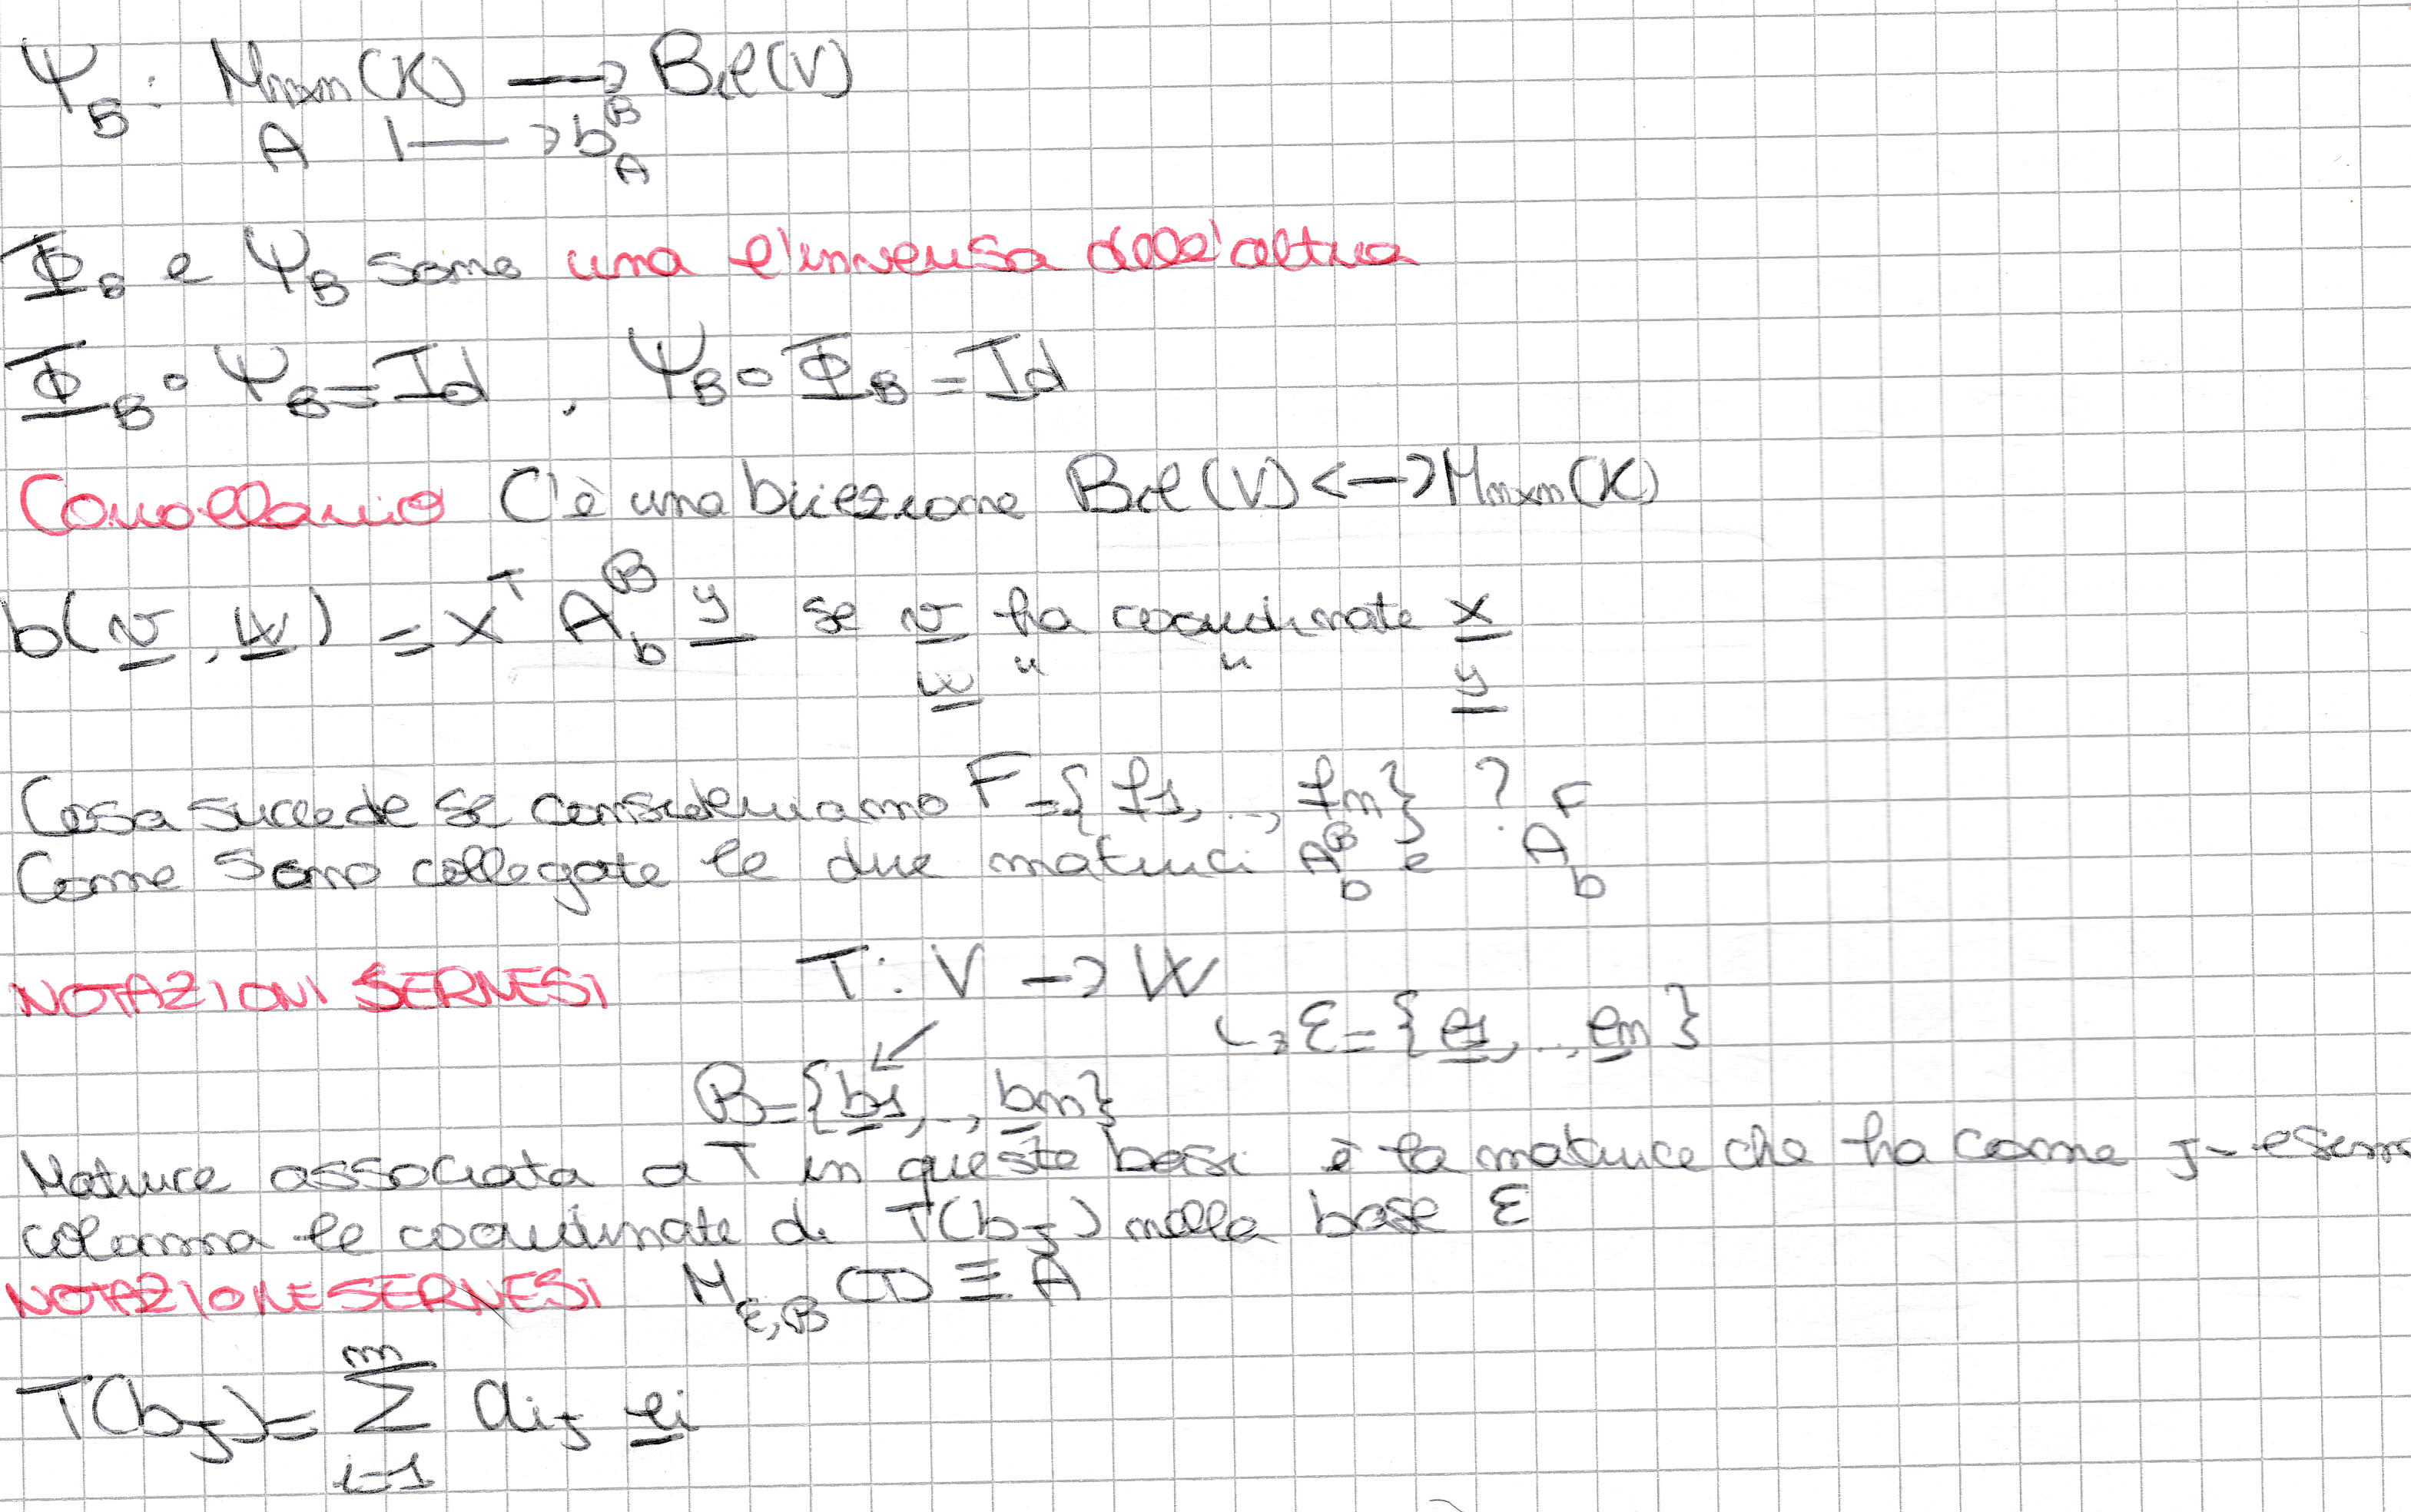 Ψ_B : M_{n×n}(K) ⟶ Bil(V)
A ⟼ b_A^B
Φ_B e Ψ_B sono una l'inversa dell'altra
Φ_B ∘ Ψ_B = Id , Ψ_B ∘ Φ_B = Id
Corollario C'è una biiezione Bil(V) <-> M_{n×n}(K)
b(v, w) = x^T A_b^B y se v ha coordinate x
w " " y
Cosa succede se consideriamo F = {f1, .., fn} ?
Come sono collegate le due matrici A_b^B e A_b^F
NOTAZIONI SERNESI T : V -> W
↳ ε = {e1, .., em}
B = {b1, .., bn}
Matrice associata a T in queste basi è la matrice che ha come J-esima
colonna le coordinate di T(b_J) nella base ε
NOTAZIONE SERNESI M_{ε,B}(T) ≡ A
T(b_J) = Σ_{i=1}^{m} a_{iJ} e_i